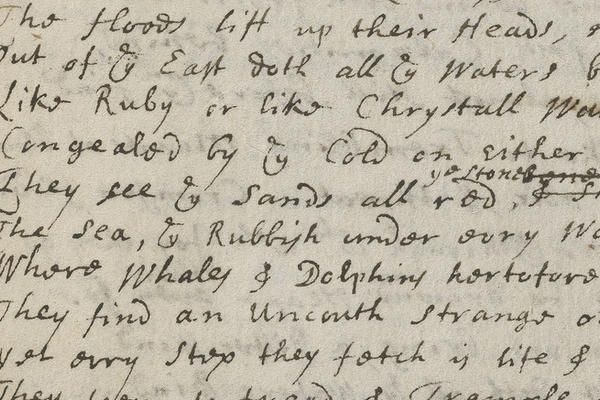 The floods lift up their Heads,
Out of ye East doth all ye Waters
Like Ruby or like Chrystall
Congealed by ye Cold on either
ye Stones
They see ye Sands all red, &
The Sea, ye Rubbish under evry
Where Whales & Dolphins hertofore
They find an Uncouth strange
Yet evry Step they fetch is life &
They